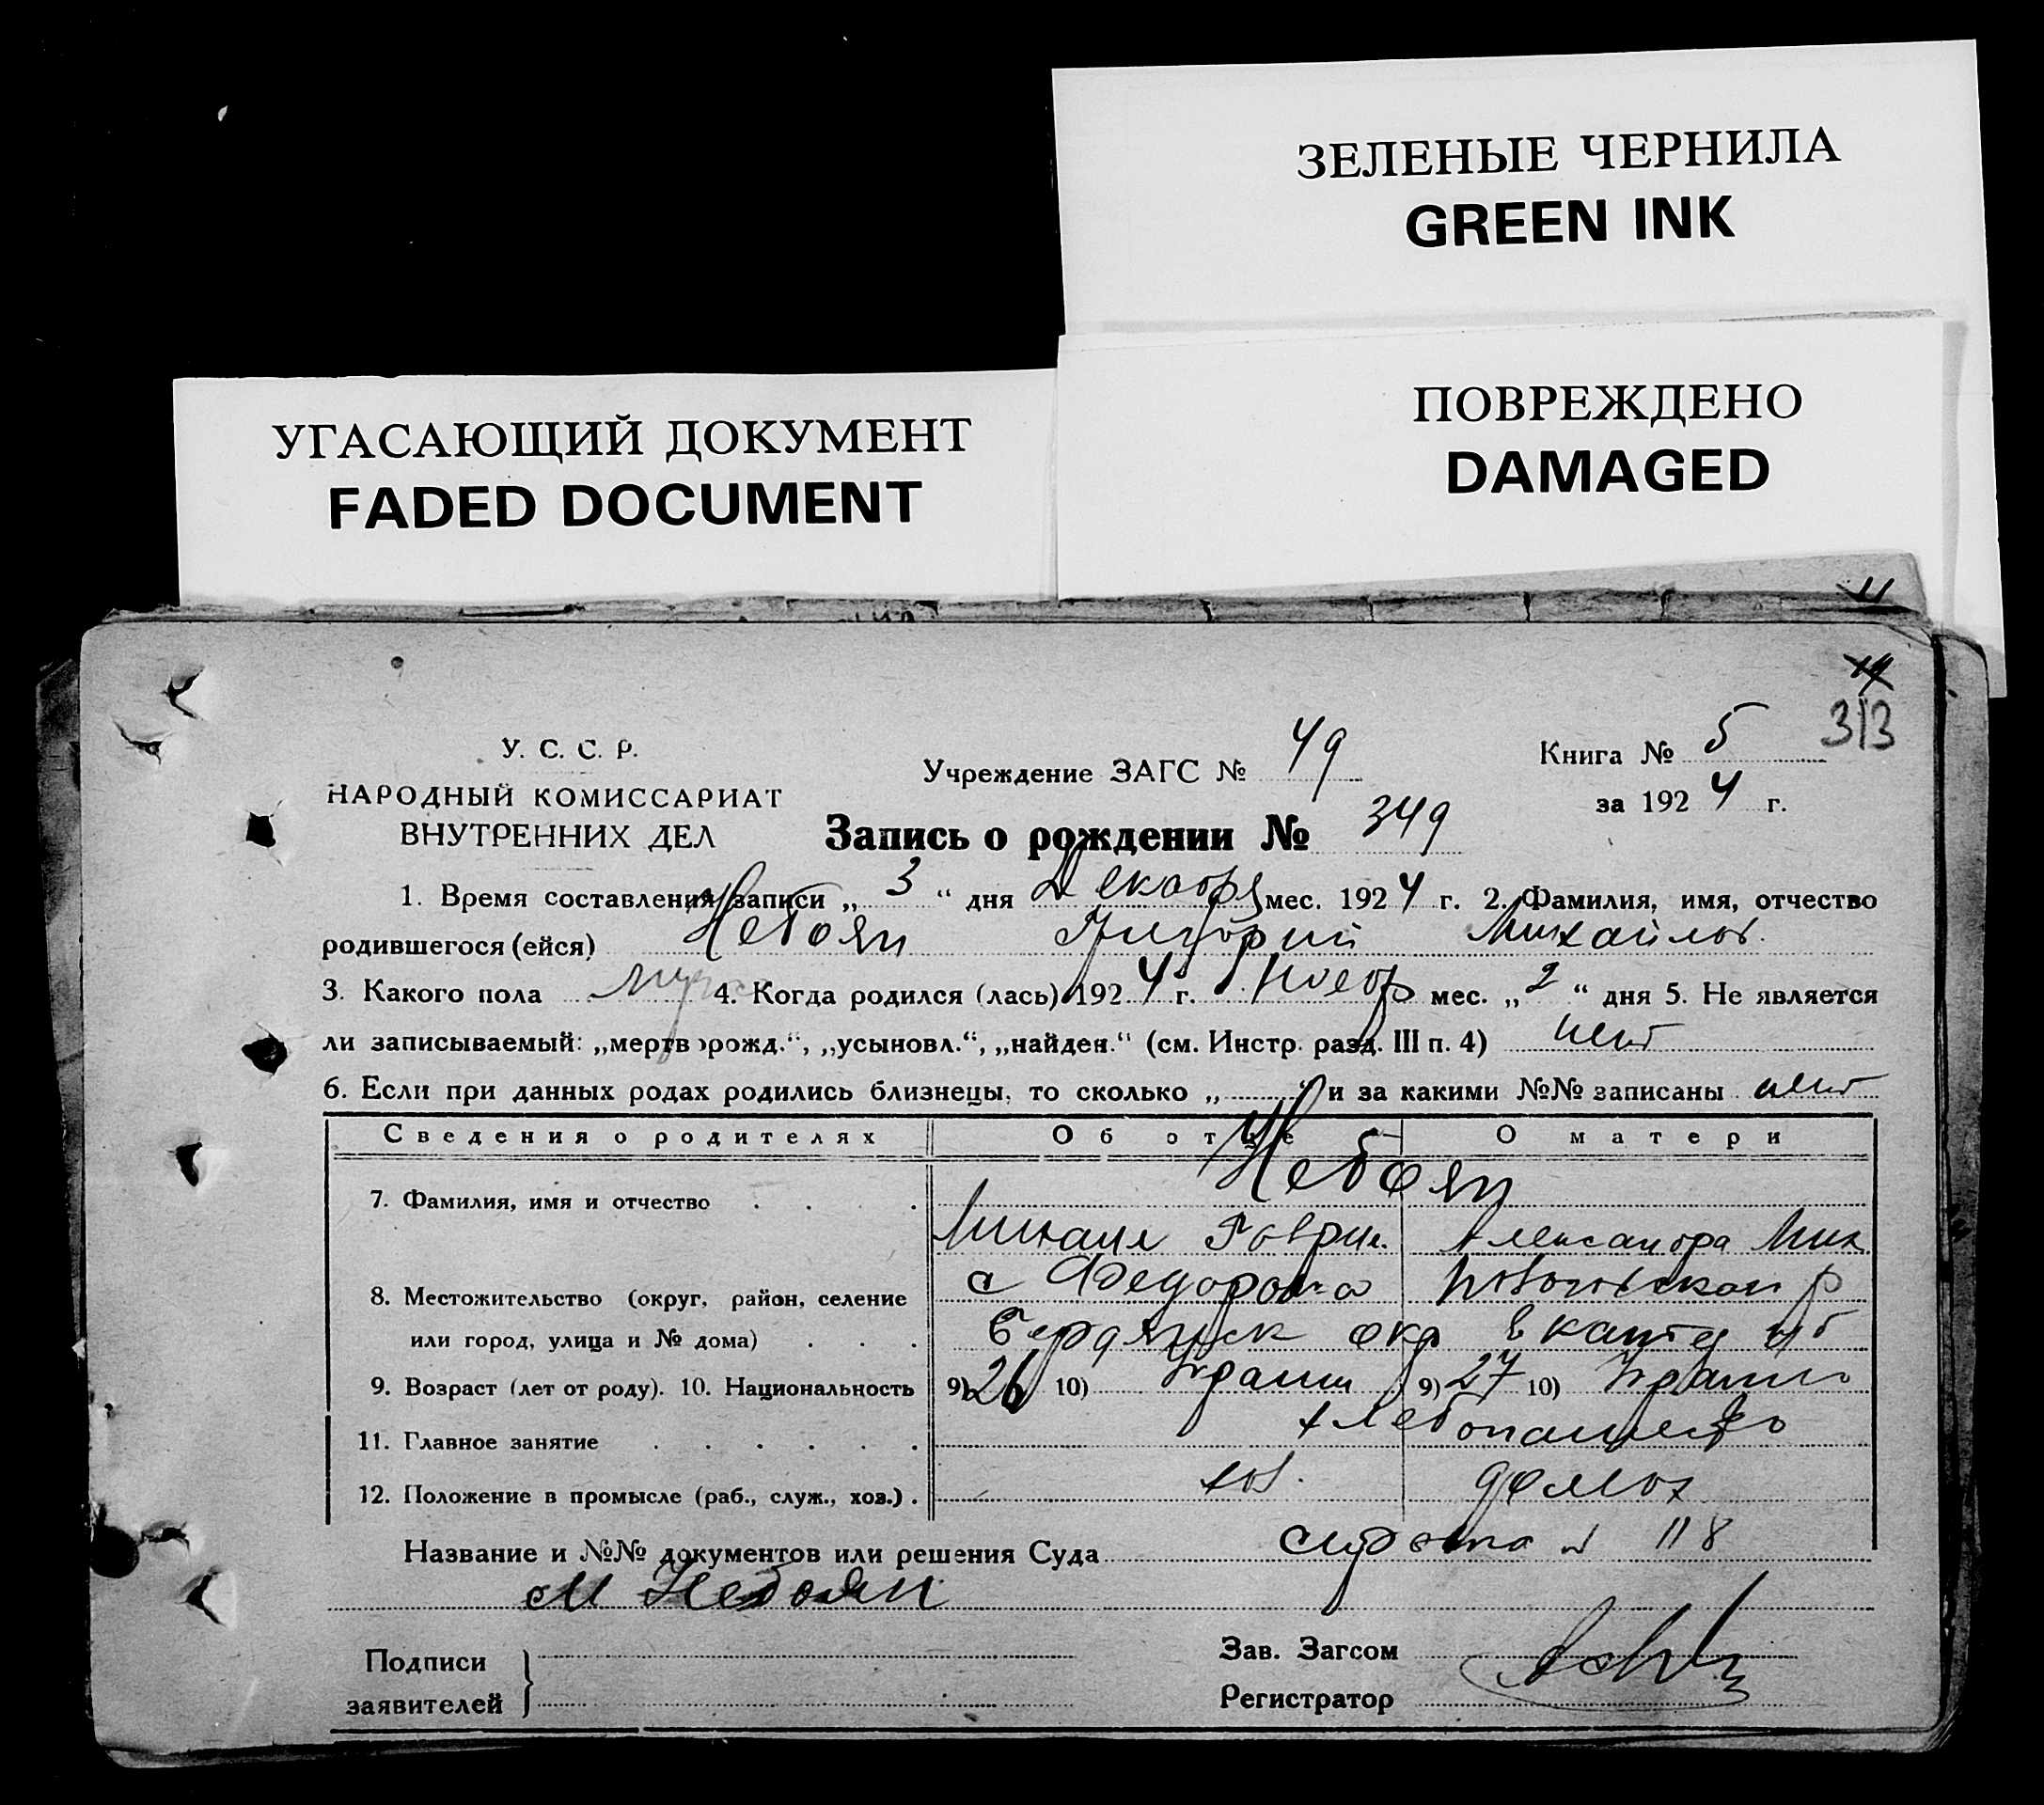 ЗЕЛЕНЫЕ ЧЕРНИЛА
GREEN INK
УГАСАЮЩИЙ ДОКУМЕНТ
FADED DOCUMENT
ПОВРЕЖДЕНО
DAMAGED
11
313
У. С. С. Р.
НАРОДНЫЙ КОМИССАРИАТ
ВНУТРЕННИХ ДЕЛ
Учреждение ЗАГС № 49
Книга № 5
за 1924 г.
Запись о рождении № 349
1. Время составления записи „ 3 “ дня Декабря мес. 1924 г. 2. Фамилия, имя, отчество
родившегося (ейся) Небоян Григорий Михайлов.
3. Какого пола муж 4. Когда родился (лась) 1924 г. Ноябр мес. „ 2 “ дня 5. Не является
ли записываемый: „мертворожд.“, „усыновл.“, „найден.“ (см. Инстр. разд. III п. 4) нет
6. Если при данных родах родились близнецы, то сколько „ “ и за какими №№ записаны нет
Сведения о родителях Об отце О матери
7. Фамилия, имя и отчество Небоян
Михаил Гаврил. Александра Мих
8. Местожительство (округ, район, селение с Федоровка р
или город, улица и № дома) Бердянск окр
9. Возраст (лет от роду). 10. Национальность 9) 26 10) Украин 9) 27 10) Украин
11. Главное занятие хлебопашество
12. Положение в промысле (раб., служ., хоз.) хоз. домох
Название и №№ документов или решения Суда 118
М Небоян
Подписи
заявителей
Зав. Загсом
Регистратор